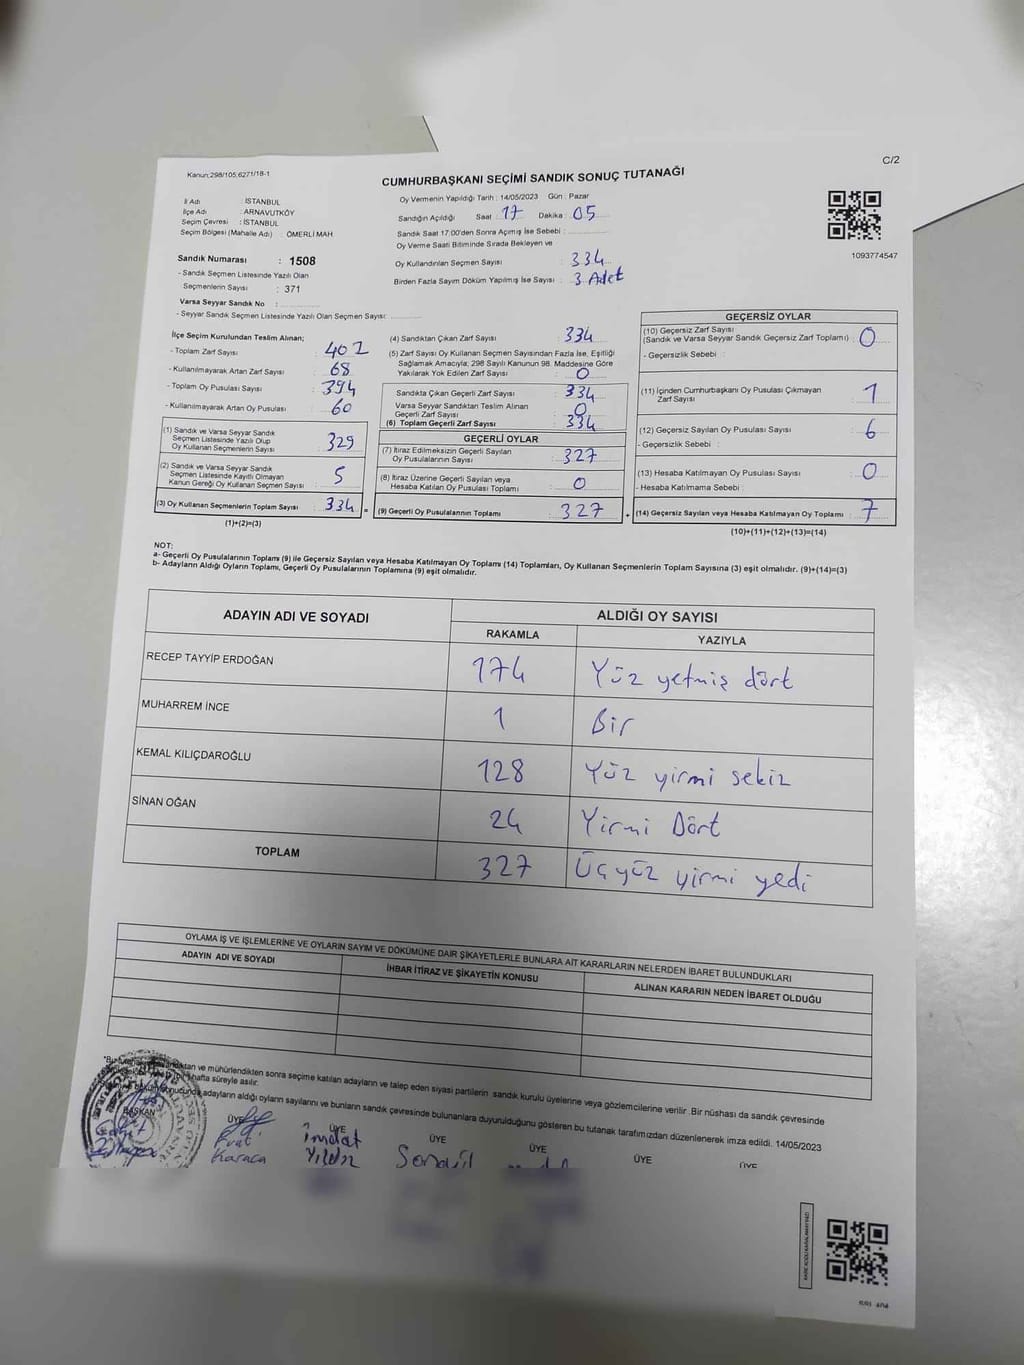 C/2
Kanun:298/105,6271/18-1
CUMHURBAŞKANI SEÇİMİ SANDIK SONUÇ TUTANAĞI
İl Adı : İSTANBUL
İlçe Adı : ARNAVUTKÖY
Seçim Çevresi : İSTANBUL
Seçim Bölgesi (Mahalle Adı) : ÖMERLİ MAH.
Sandık Numarası : 1508
- Sandık Seçmen Listesinde Yazılı Olan
Seçmenlerin Sayısı : 371
Varsa Seyyar Sandık No :
- Seyyar Sandık Seçmen Listesinde Yazılı Olan Seçmen Sayısı:
Oy Vermenin Yapıldığı Tarih : 14/05/2023 Gün : Pazar
Sandığın Açıldığı Saat 17 Dakika : 05
Sandık Saat 17:00'den Sonra Açımış İse Sebebi :
Oy Verme Saati Bitiminde Sırada Bekleyen ve
Oy Kullandırılan Seçmen Sayısı : 334
Birden Fazla Sayım Döküm Yapılmış İse Sayısı : 3 Adet
1093774547
İlçe Seçim Kurulundan Teslim Alınan;
- Toplam Zarf Sayısı : 402
- Kullanılmayarak Artan Zarf Sayısı : 68
- Toplam Oy Pusulası Sayısı : 394
- Kullanılmayarak Artan Oy Pusulası : 60
(1) Sandık ve Varsa Seyyar Sandık
Seçmen Listesinde Yazılı Olup
Oy Kullanan Seçmenlerin Sayısı : 329
(2) Sandık ve Varsa Seyyar Sandık
Seçmen Listesinde Kayıtlı Olmayan
Kanun Gereği Oy Kullanan Seçmen Sayısı : 5
(3) Oy Kullanan Seçmenlerin Toplam Sayısı : 334 =
(1)+(2)=(3)
(4) Sandıktan Çıkan Zarf Sayısı : 334
(5) Zarf Sayısı Oy Kullanan Seçmen Sayısından Fazla İse, Eşitliği
Sağlamak Amacıyla; 298 Sayılı Kanunun 98. Maddesine Göre
Yakılarak Yok Edilen Zarf Sayısı : 0
Sandıkta Çıkan Geçerli Zarf Sayısı : 334
Varsa Seyyar Sandıktan Teslim Alınan
Geçerli Zarf Sayısı : 0
(6) Toplam Geçerli Zarf Sayısı : 334
GEÇERLİ OYLAR
(7) İtiraz Edilmeksizin Geçerli Sayılan
Oy Pusulalarının Sayısı : 327
(8) İtiraz Üzerine Geçerli Sayılan veya
Hesaba Katılan Oy Pusulası Toplamı : 0
(9) Geçerli Oy Pusulalarının Toplamı : 327 +
GEÇERSİZ OYLAR
(10) Geçersiz Zarf Sayısı
(Sandık ve Varsa Seyyar Sandık Geçersiz Zarf Toplamı) : 0
- Geçersizlik Sebebi :
(11) İçinden Cumhurbaşkanı Oy Pusulası Çıkmayan
Zarf Sayısı : 1
(12) Geçersiz Sayılan Oy Pusulası Sayısı : 6
- Geçersizlik Sebebi :
(13) Hesaba Katılmayan Oy Pusulası Sayısı : 0
- Hesaba Katılmama Sebebi :
(14) Geçersiz Sayılan veya Hesaba Katılmayan Oy Toplamı : 7
(10)+(11)+(12)+(13)=(14)
NOT:
a- Geçerli Oy Pusulalarının Toplamı (9) ile Geçersiz Sayılan veya Hesaba Katılmayan Oy Toplamı (14) Toplamları, Oy Kullanan Seçmenlerin Toplam Sayısına (3) eşit olmalıdır. (9)+(14)=(3)
b- Adayların Aldığı Oyların Toplamı, Geçerli Oy Pusulalarının Toplamına (9) eşit olmalıdır.
ADAYIN ADI VE SOYADI ALDIĞI OY SAYISI
RAKAMLA YAZIYLA
RECEP TAYYİP ERDOĞAN 174 Yüz yetmiş dört
MUHARREM İNCE 1 Bir
KEMAL KILIÇDAROĞLU 128 Yüz yirmi sekiz
SİNAN OĞAN 24 Yirmi Dört
TOPLAM 327 Üçyüz yirmi yedi
OYLAMA İŞ VE İŞLEMLERİNE VE OYLARIN SAYIM VE DÖKÜMÜNE DAİR ŞİKAYETLERLE BUNLARA AİT KARARLARIN NELERDEN İBARET BULUNDUKLARI
ADAYIN ADI VE SOYADI İHBAR İTİRAZ VE ŞİKAYETİN KONUSU ALINAN KARARIN NEDEN İBARET OLDUĞU
ve mühürlendikten sonra seçime katılan adayların ve talep eden siyasi partilerin sandık kurulu üyelerine veya gözlemcilerine verilir. Bir nüshası da sandık çevresinde
hafta süreyle asılır.
adayların aldığı oyların sayılarını ve bunların sandık çevresinde bulunanlara duyurulduğunu gösteren bu tutanak tarafımızdan düzenlenerek imza edildi. 14/05/2023
BAŞKAN ÜYE ÜYE ÜYE ÜYE ÜYE ÜYE
Karaca
İmdat
Yıldız